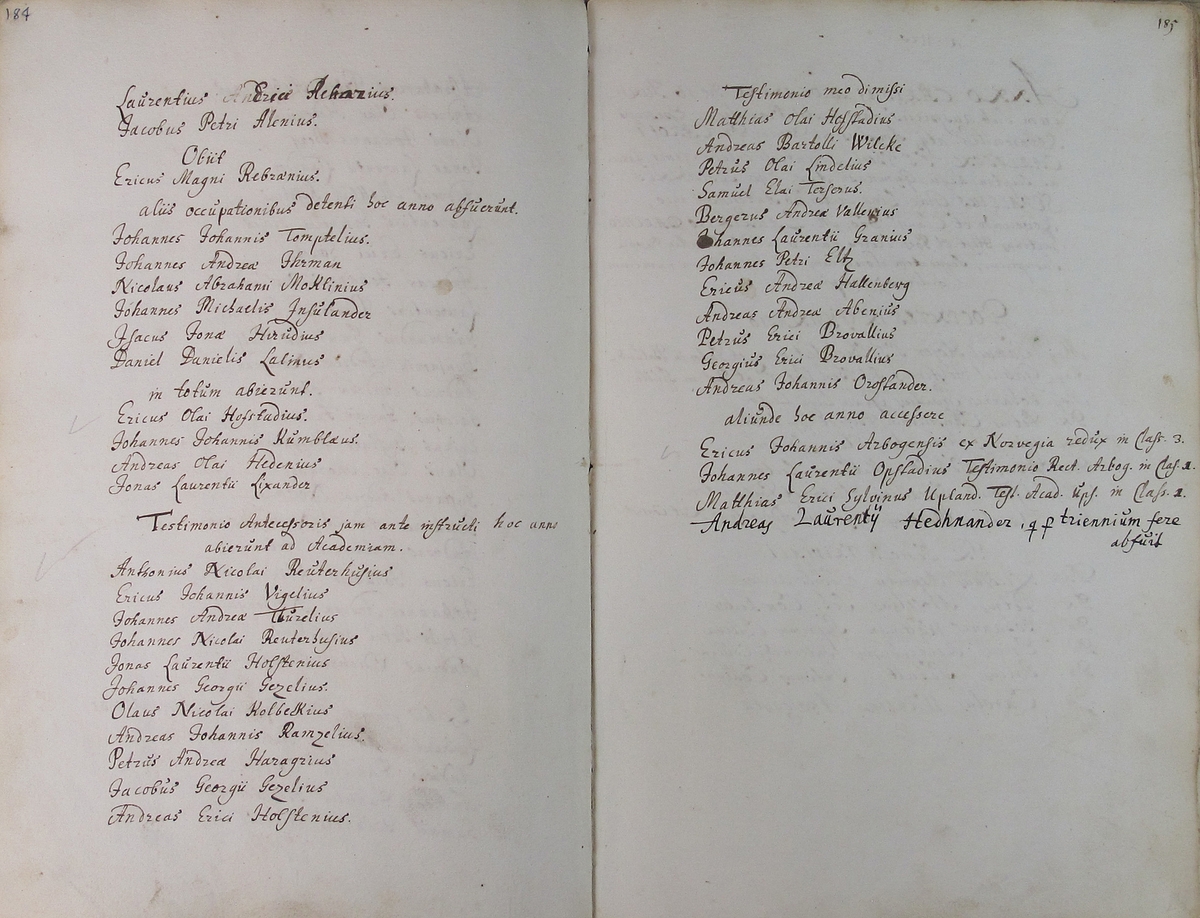 184
Laurentius Erici Rehnzius.
Jacobus Petri Alenius.
Obiit
Ericus Magni Rebrænius.
aliis occupationibus detenti hoc anno abfuerunt.
Johannes Johannis Tomptelius.
Johannes Andreæ Ihrman
Nicolaus Abrahami Moklinius
Johannes Michaelis Insulander
Isacus Jonæ Hirudius
Daniel Danielis Lalinus
in totum abierunt.
Ericus Olai Hofstadius.
Johannes Johannis Kumblæus.
Andreas Olai Hedenius
Jonas Laurentii Lixander
Testimonio Antecessoris jam ante instructi hoc anno
abierunt ad Academiam.
Anthonius Nicolai Reuterhusius
Ericus Johannis Vigelius
Johannes Andreæ Thurelius
Johannes Nicolai Reuterhusius
Jonas Laurentii Holstenius
Johannes Georgii Gezelius.
Olaus Nicolai Kolbeckius
Andreas Johannis Ramzelius.
Petrus Andreæ Haragrius
Jacobus Georgii Gezelius
Andreas Erici Holstenius.
185
Testimonio meo dimissi
Matthias Olai Hofstadius
Andreas Bartolli Wilcke
Petrus Olai Lindelius
Samuel Elai Terserus.
Bergerus Andreæ Vallerius
Johannes Laurentii Granius
Johannes Petri Eltz
Ericus Andreæ Hallenberg
Andreas Andreæ Abenius
Petrus Erici Brovallius
Georgius Erici Brovallius
Andreas Johannis Orostander.
aliunde hoc anno accessere
Ericus Johannis Arbogensis ex Norvegia redux in Class. 3.
Johannes Laurentii Opstadius Testimonio Rect. Arbog. in Clas. 2.
Matthias Erici Sylvinus Upland. Test. Acad. Ups. in Class. 2.
Andreas Laurentij Hedhnander, q p triennium fere
abfuit